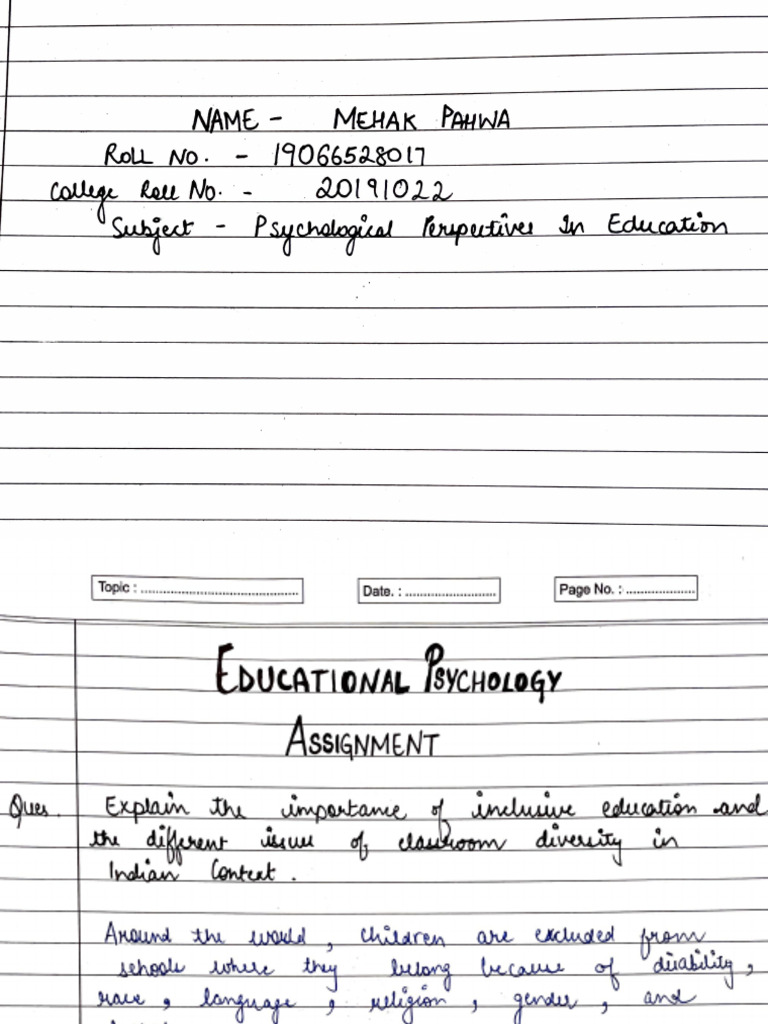 NAME - MEHAK PAHWA
Roll No. - 19066528017
College Roll No. - 20191022
Subject - Psychological Perspectives In Education
Topic : ..........................................
Date. : ........................
Page No. : ..................
EDUCATIONAL PSYCHOLOGY
ASSIGNMENT
Ques. Explain the importance of inclusive education and
the different issues of classroom diversity in
Indian Context.
Around the world, children are excluded from
schools where they belong because of disability,
race, language, religion, gender, and